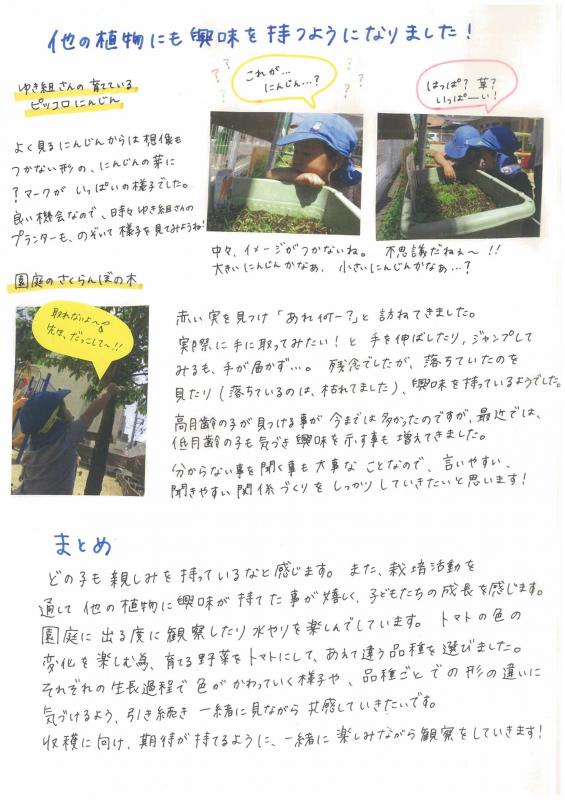 他の植物にも興味を持つようになりました!
ゆき組さんの育てている
ピッコロにんじん
これが…
にんじん…?
はっぱ?草?
いっぱーい!
よく見るにんじんからは想像も
つかない形の、にんじんの芽に
?マークがいっぱいの様子でした。
良い機会なので、時々ゆき組さんの
プランターも、のぞいて様子を見てみようね!
中々、イメージがつかないね。 不思議だねぇ〜!!
大きいにんじんかなぁ、小さいにんじんかなぁ…?
園庭のさくらんぼの木
取れないよ〜
先生、だっこして〜!!
赤い実を見つけ「あれ何ー?」と訪ねてきました。
実際に手に取ってみたい!と手を伸ばしたり、ジャンプして
みるも、手が届かず…。残念でしたが、落ちていたのを
見たり(落ちているのは、枯れてました)、興味を持っているようでした。
高月齢の子が見つける事が今までは多かったのですが、最近では、
低月齢の子も気づき興味を示す事も増えてきました。
分からない事を聞く事も大事なことなので、言いやすい、
聞きやすい関係づくりをしっかりしていきたいと思います!
まとめ
どの子も親しみを持っているなと感じます。また、栽培活動を
通して他の植物に興味が持てた事が嬉しく、子どもたちの成長を感じます。
園庭に出る度に観察したり水やりを楽しんでしています。トマトの色の
変化を楽しむ為、育てる野菜をトマトにして、あえて違う品種を選びました。
それぞれの生長過程で色がかわっていく様子や、品種ごとでの形の違いに
気づけるよう、引き続き一緒に見ながら共感していきたいです。
収穫に向け、期待が持てるように、一緒に楽しみながら観察をしていきます!